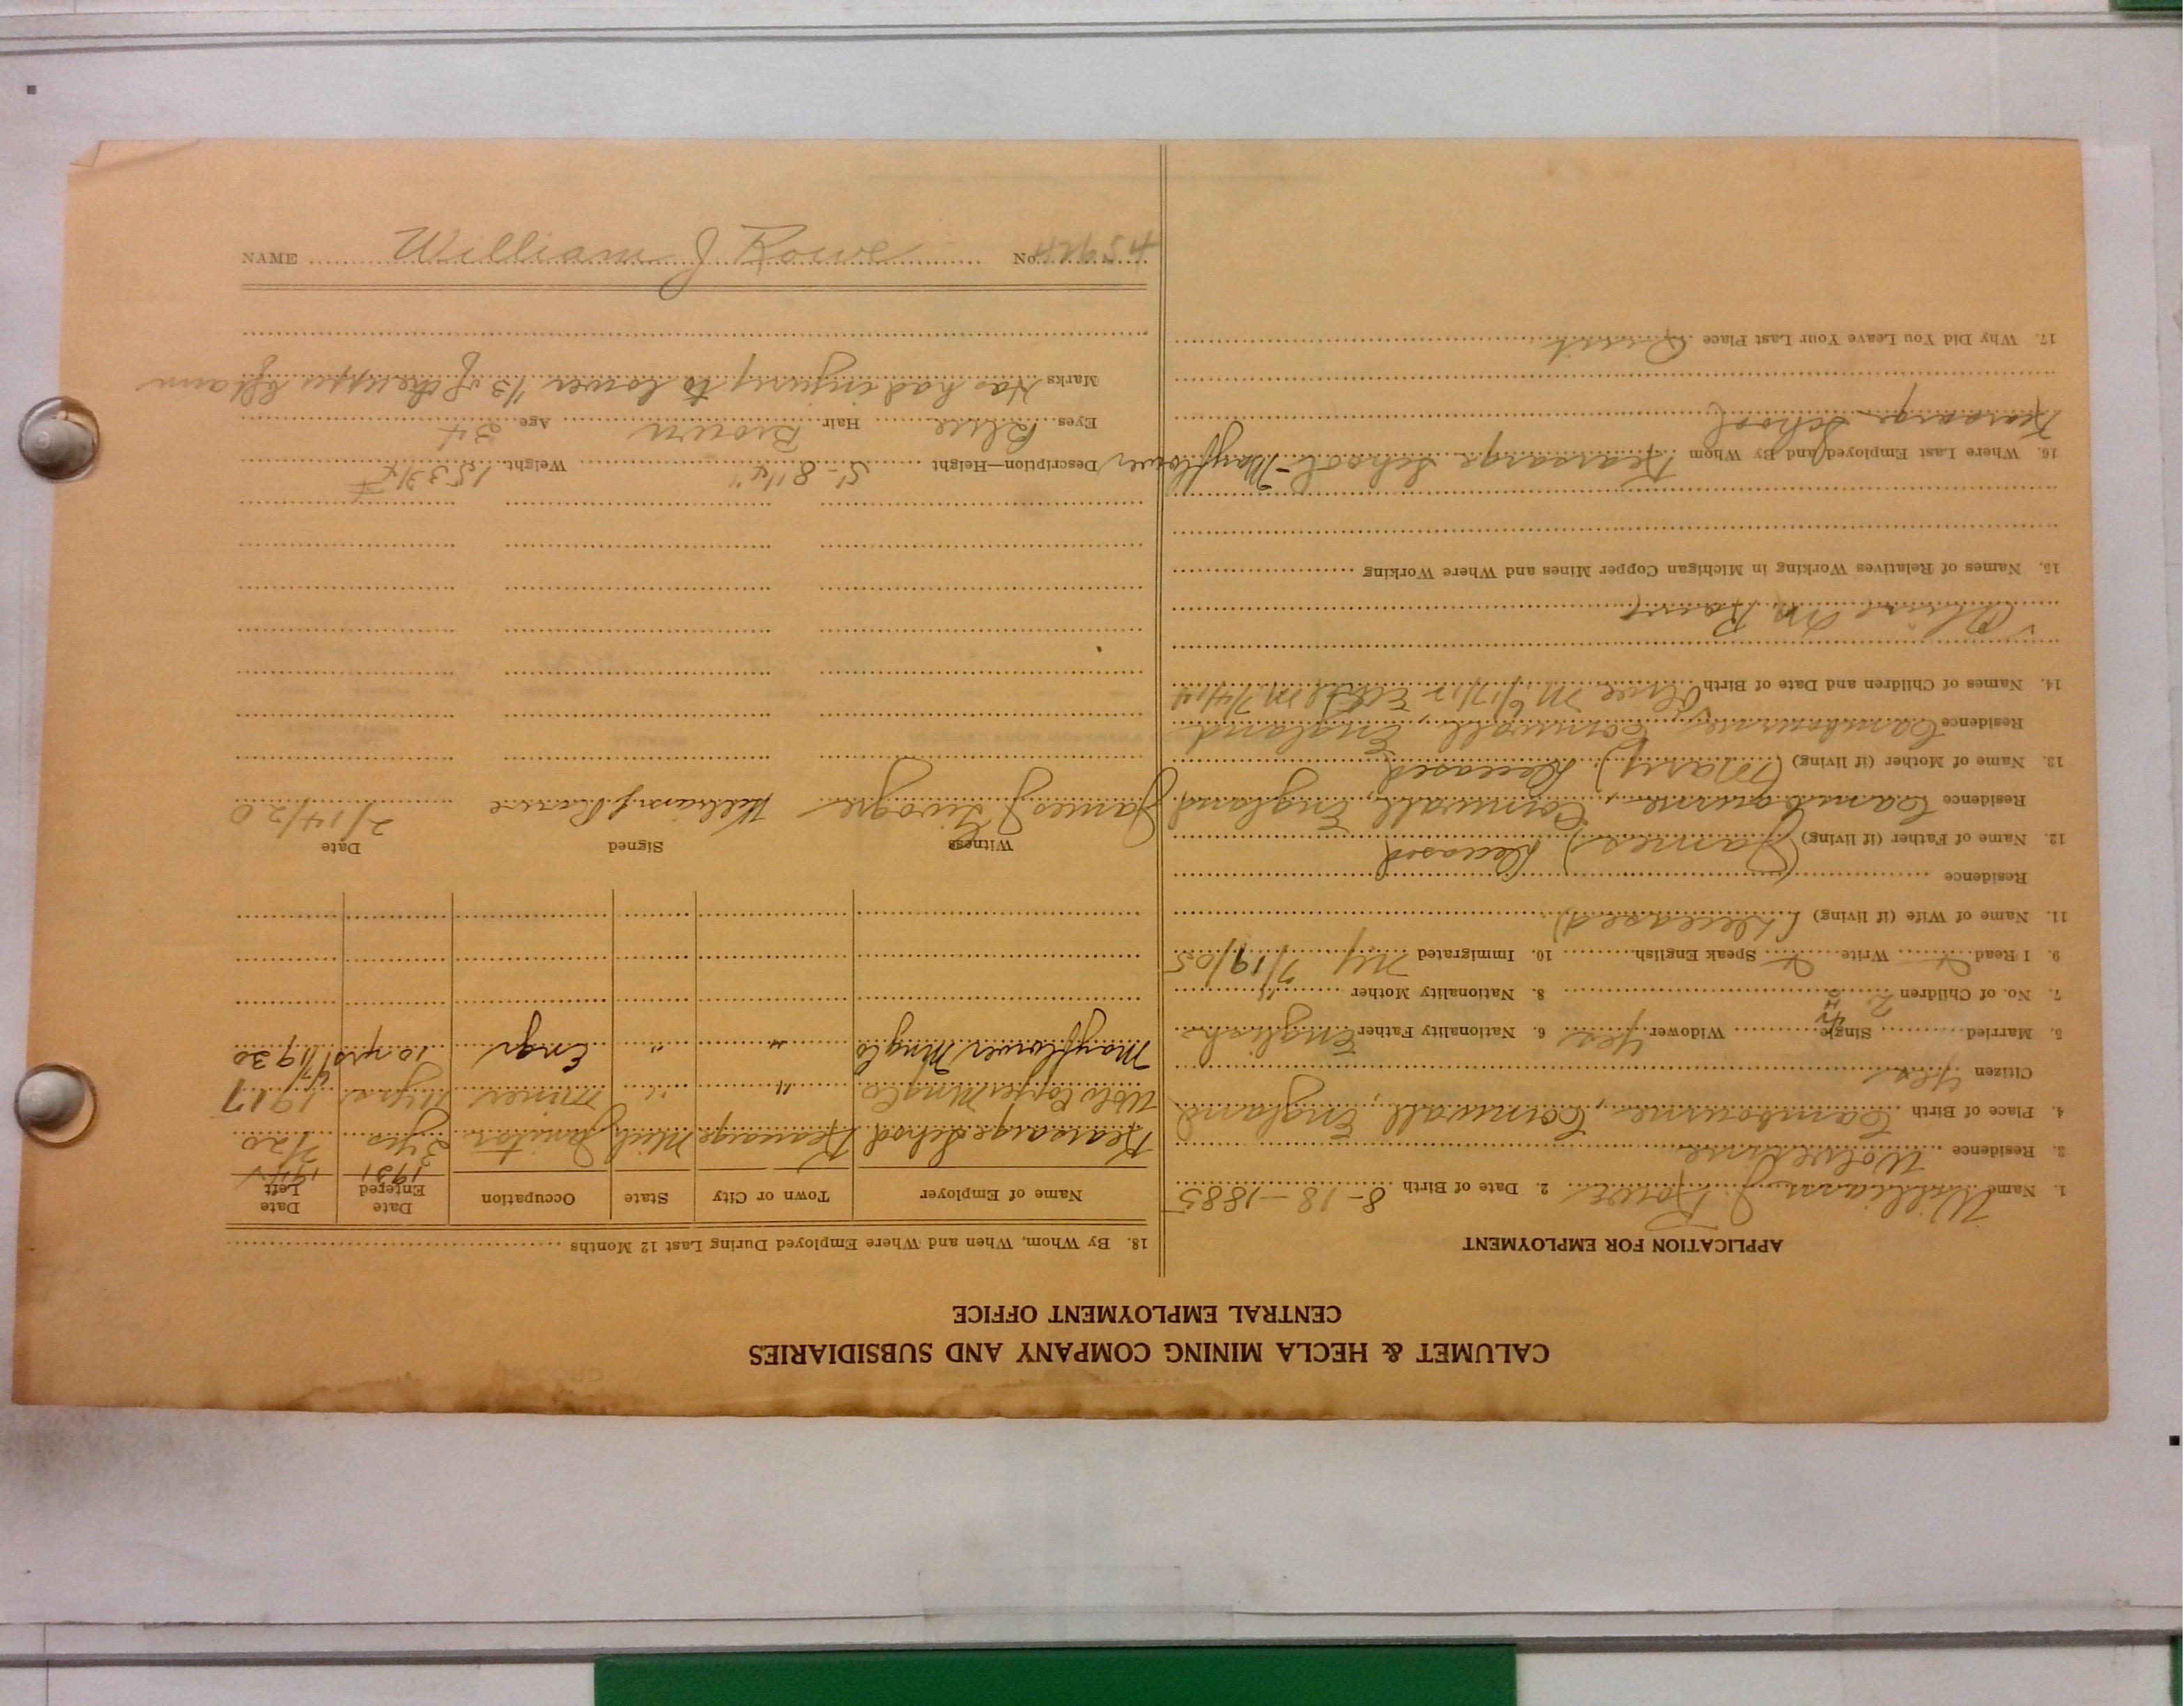 CALUMET & HECLA MINING COMPANY AND SUBSIDIARIES
CENTRAL EMPLOYMENT OFFICE
APPLICATION FOR EMPLOYMENT
1. Name William J. Rowe 2. Date of Birth 8-18-1885
3. Residence Wolverine
4. Place of Birth Cambourne, Cornwall, England
Citizen yes
5. Married Single Widower yes 6. Nationality Father English
7. No. of Children 2 8. Nationality Mother "
9. I Read Write Speak English 10. Immigrated NY 7/19/05
11. Name of Wife (if living) (Deceased)
Residence
12. Name of Father (if living) (James) Deceased
Residence Cambourne, Cornwall, England
13. Name of Mother (if living) (Mary) Deceased
Residence Cambourne, Cornwall, England
14. Names of Children and Date of Birth Olive M. 6/17/12 M 7/4/14
15. Names of Relatives Working in Michigan Copper Mines and Where Working
16. Where Last Employed and By Whom Kearsarge School - Mayflower
Kearsarge School
17. Why Did You Leave Your Last Place Quit
18. By Whom, When and Where Employed During Last 12 Months
Name of Employer Town or City State Occupation Date Entered Date Left
1931
Kearsarge School Kearsarge Mich Janitor 2 yrs 2/20
Wolv Copper Mng Co " " Miner 11 yrs 1917
Mayflower Mng Co " " Engr 10 yrs 1930
Witness Signed Date
James J William J Rowe 2/14/20
Description—Height 5'-8 1/4" Weight 153 3/4 #
Eyes Blue Hair Brown Age 34
Marks Has had injury to lower 1/3 of the upper left arm
NAME William J Rowe No. 42654